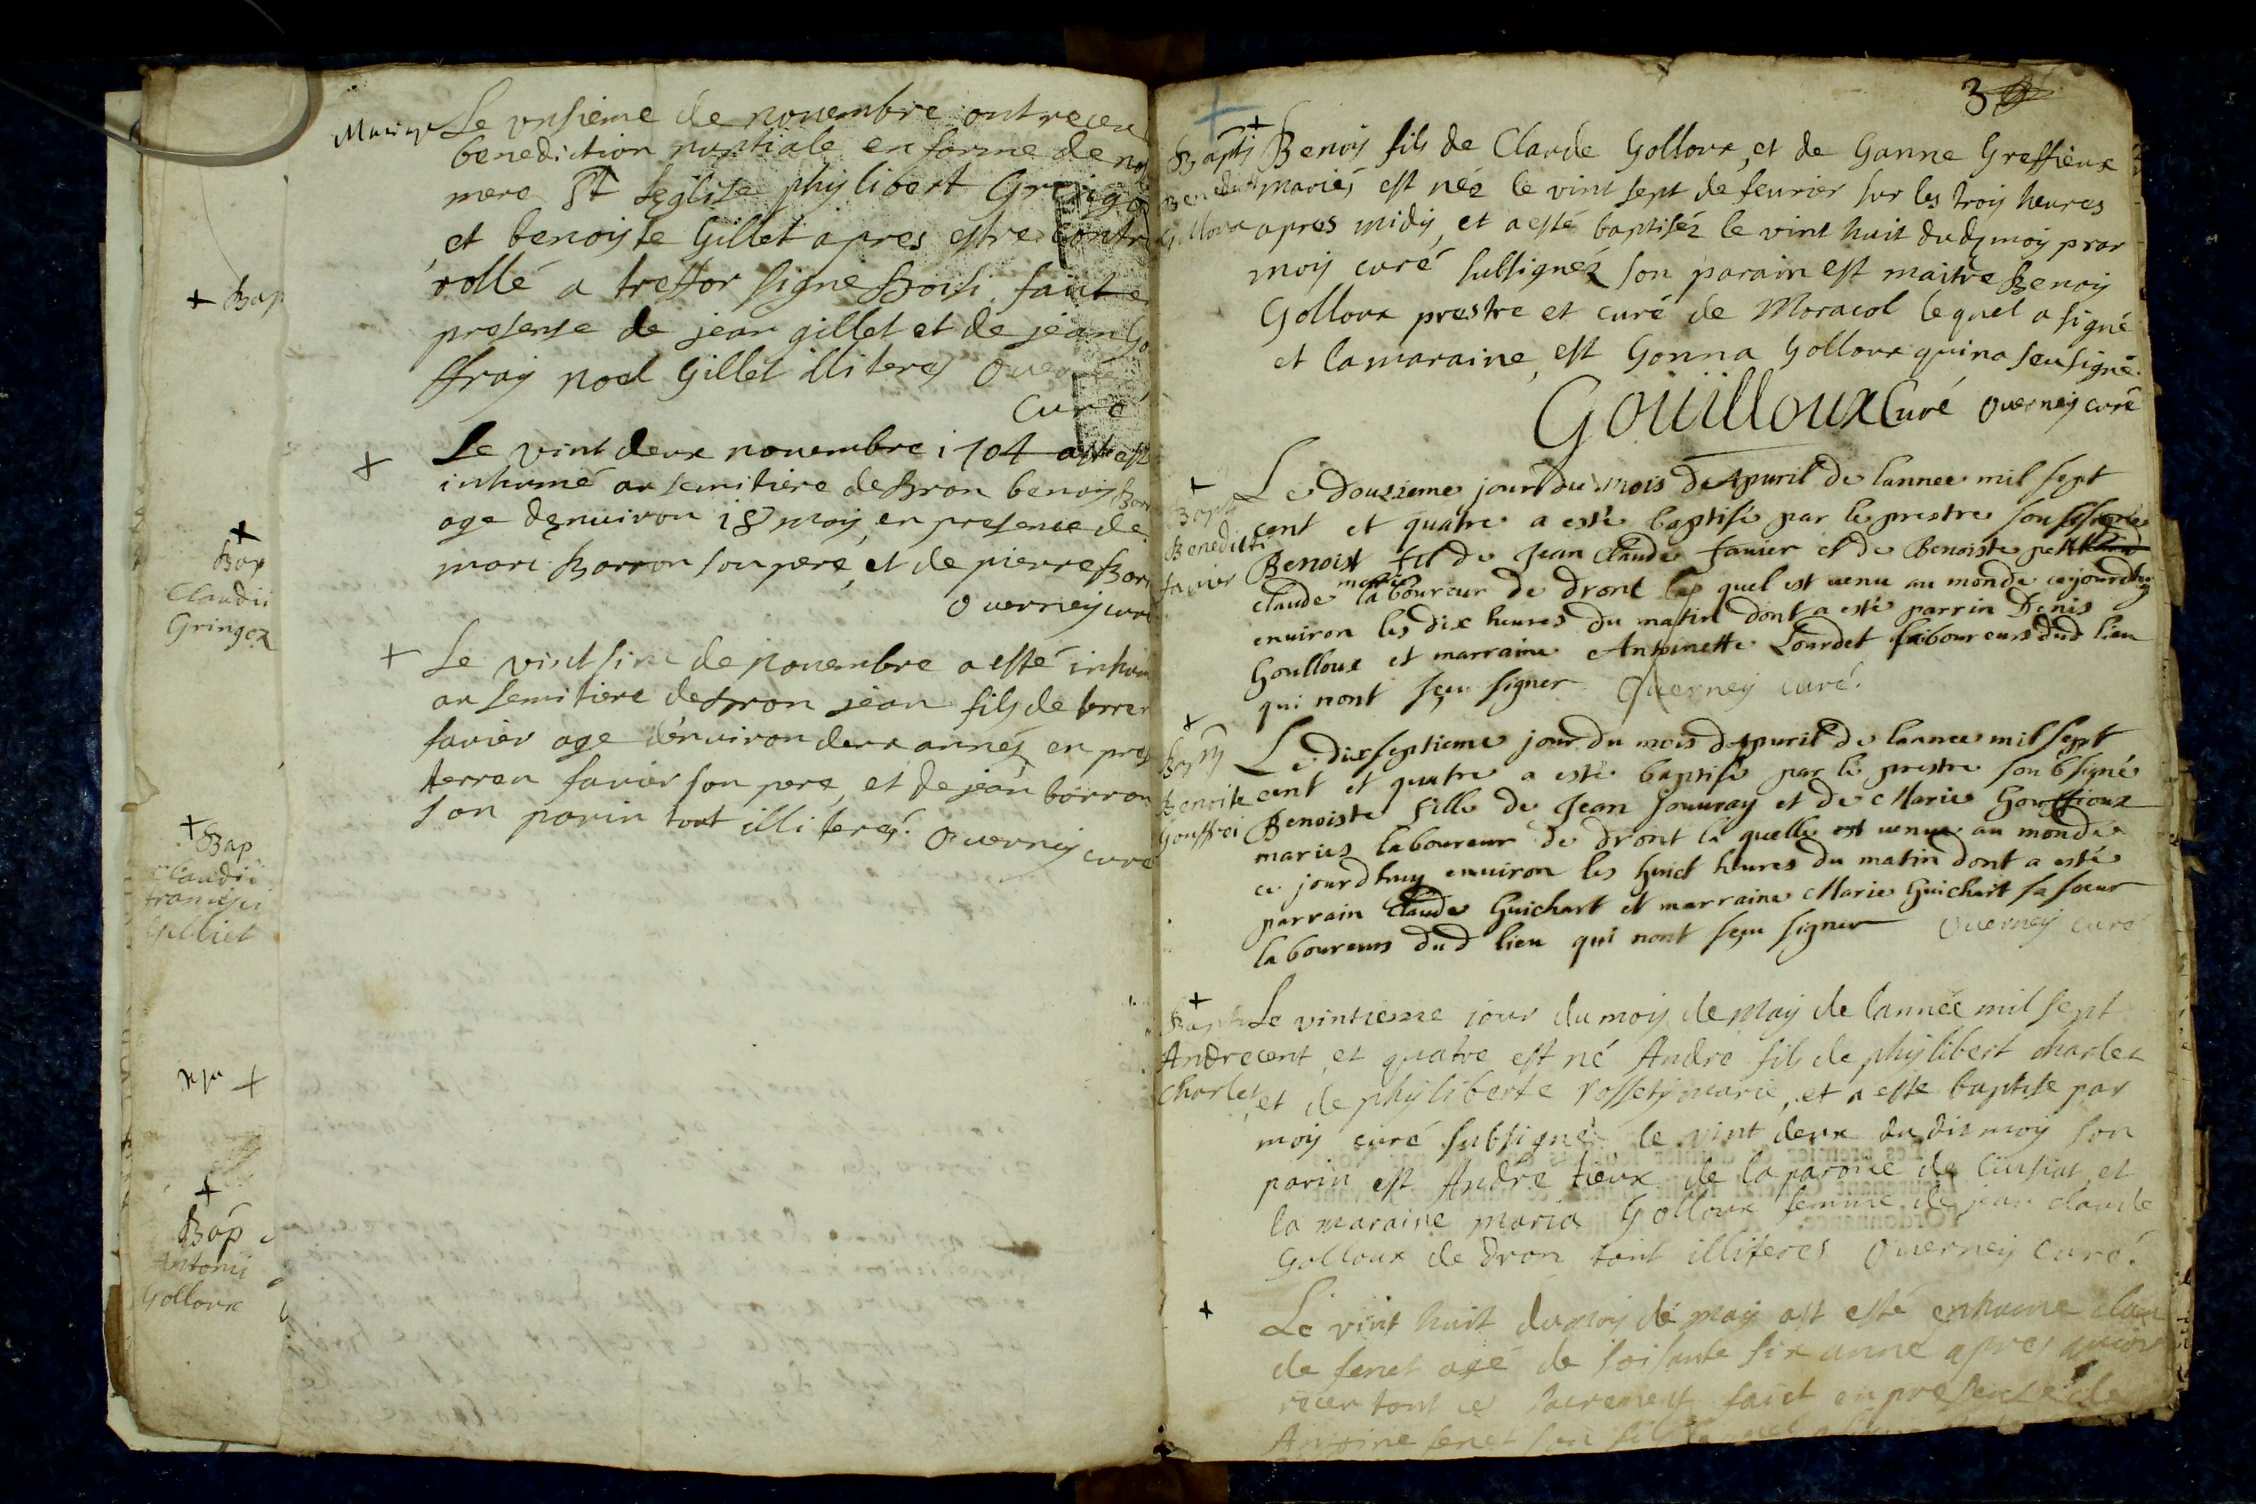 Mariage
Le unsieme de novembre ont receu
benediction nuptiale en forme de no
mere St leglise phylibert Gringo
et benoyte Gillet apres estre contr
rollé a treffor signe Boisi fait e
presense de jean gillet et de jean Go
ffray noel Gillet illiteres Overney
Curé
+
Le vint deux novembre 1704 est
inhumé au semitiere de Dron benoy Bor
age denviron 18 moy, en presence de
marc Borron son pere, et de pierre Borr
Overney curé
+
Le vint six de novembre a esté inhum
au semitiere de Dron jean fils de terren
favier age denviron deux années en pres
terren favier son pere, et de jean borron
son parin tout illiteres. Overney curé
+ Bap
+
Bap
Claudii
Gringoz
+ Bap
Claudii
francisci
Gilliet
+
+
Bap
Antonii
Golloux
3
+
Bapti
Benedicti
Golloux
Benoy fils de Claude Golloux, et de Ganne Greffieux
mariés est néz le vint sept de feurier sur les troy heures
apres midy, et a esté baptiséz le vint huit dud moy par
moy curé subsignéz son parain est maitre Benoy
Golloux prestre et curé de Moracol lequel a signé
et la maraine, est Gonna Golloux qui na seu signé.
Goüilloux Curé Overney curé
+
Bapti
Benedicti
favier
Le douzieme jour du mois dapuril de lannee mil sept
cent et quatre a esté baptisé par le prestre soubsigné
Benoist fil de Jean Claude fauier et de Benoiste petit
claude mariés laboureur de dront le quel est uenu au monde cejourdhuy
enuiron les dix heures du matin dont a esté parrin Denis
Goulloux et marraine Antoinette Lourdet laboureurs dud lieu
qui nont sçeu signer Overney curé.
+
Bapti
benoite
Gouffroi
Le dixseptieme jour du mois dapuril de lannee mil sept
cent et quatre a esté baptisé par le prestre soubsigné
Benoiste fille de Jean Jouuray et de Marie Gouffioux
maries laboureur de dront la quelle est uenue au monde
ce jourdhuy enuiron les huict heures du matin dont a esté
parrain Claude Guichart et marraine Marie Guichart sa soeur
laboureurs dud lieu qui nont sçeu signer Overney curé
+
Bapt
Andre
Charlet
Le vintieme jour du moy de May de lannée mil sept
cent, et quatre est né André fils de phylibert charlet
et de phyliberte rossety marié, et a esté baptisé par
moy curé subsigné le vint deux du dit moy son
parin est André tieux de la paroice de Cuisiat, et
la maraine maria Golloux femme de jean claude
Golloux de Dron tout illiteres Overney Curé.
+
Le vint huit du moy de may est esté enhume clau
de fenet agé de soisante six anne apres auoir
receu tout ces sacrement fait en presense de
Antoine fenet son fils